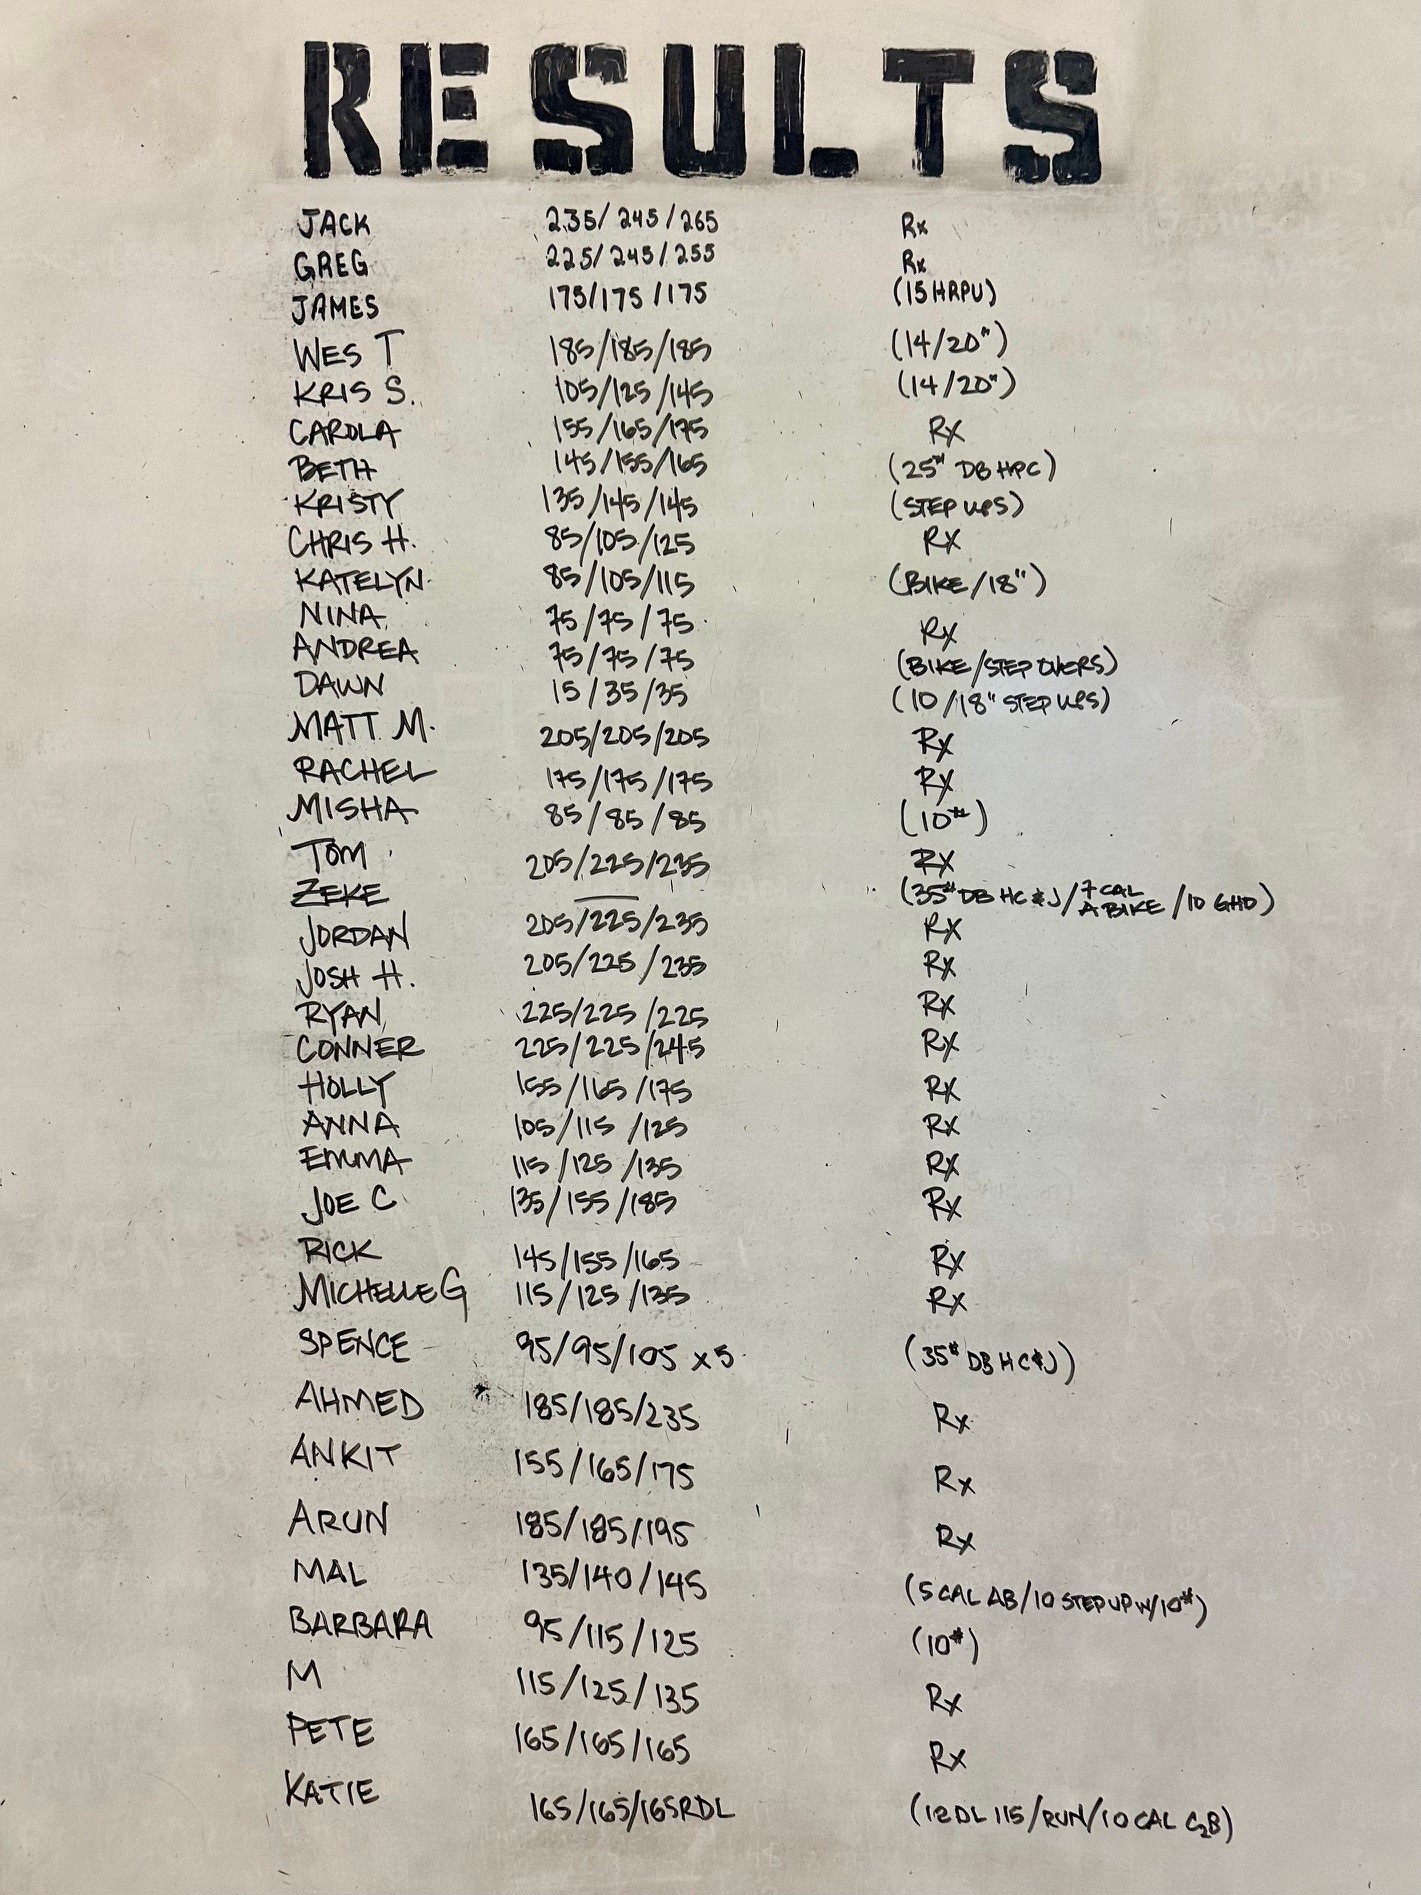 RESULTS
JACK 235/245/265 Rx
GREG 225/245/255 Rx
JAMES 175/175/175 (15 HRPU)
WES T 185/185/185 (14/20")
KRIS S. 105/125/145 (14/20")
CAROLA 155/165/175 Rx
BETH 145/155/165 (25# DB HPC)
KRISTY 135/145/145 (STEP UPS)
CHRIS H. 85/105/125 Rx
KATELYN 85/105/115 (BIKE/18")
NINA 75/75/75 Rx
ANDREA 75/75/75 (BIKE/STEP OVERS)
DAWN 15/35/35 (10/18" STEP UPS)
MATT M. 205/205/205 Rx
RACHEL 175/175/175 Rx
MISHA 85/85/85 (10#)
TOM 205/225/235 Rx
ZEKE — (35# DB HC&J/7 CAL A BIKE/10 GHD)
JORDAN 205/225/235 Rx
JOSH H. 205/225/235 Rx
RYAN 225/225/225 Rx
CONNER 225/225/245 Rx
HOLLY 155/165/175 Rx
ANNA 105/115/125 Rx
EMMA 115/125/135 Rx
JOE C 135/155/185 Rx
RICK 145/155/165 Rx
MICHELLE G 115/125/135 Rx
SPENCE 95/95/105 x5 (35# DB HC&J)
AHMED 185/185/235 Rx
ANKIT 155/165/175 Rx
ARUN 185/185/195 Rx
MAL 135/140/145 (5 CAL AB/10 STEP UP W/10#)
BARBARA 95/115/125 (10#)
M 115/125/135 Rx
PETE 165/165/165 Rx
KATIE 165/165/165RDL (12 DL 115/RUN/10 CAL C2B)